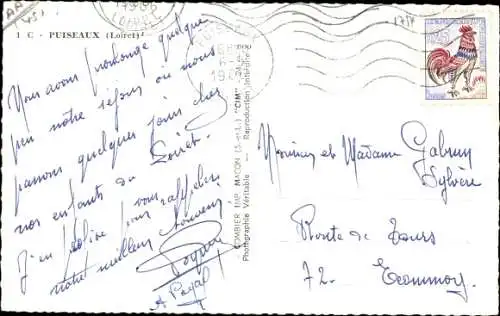 1 C - PUISEAUX (Loiret)
Nous avons prolongé quelque
peu notre séjour où nous
passons quelques jours chez
nos enfants du Loiret.
J'en profite pour vous rappeler
notre meilleur souvenir
A Payal
COMBIER IMP. MACON (S.-et-L.) "CIM"
Photographie Véritable - Reproduction Interdite
Monsieur et Madame Gabruy
Sylvère
Route de Tours
72. Ecommoy.